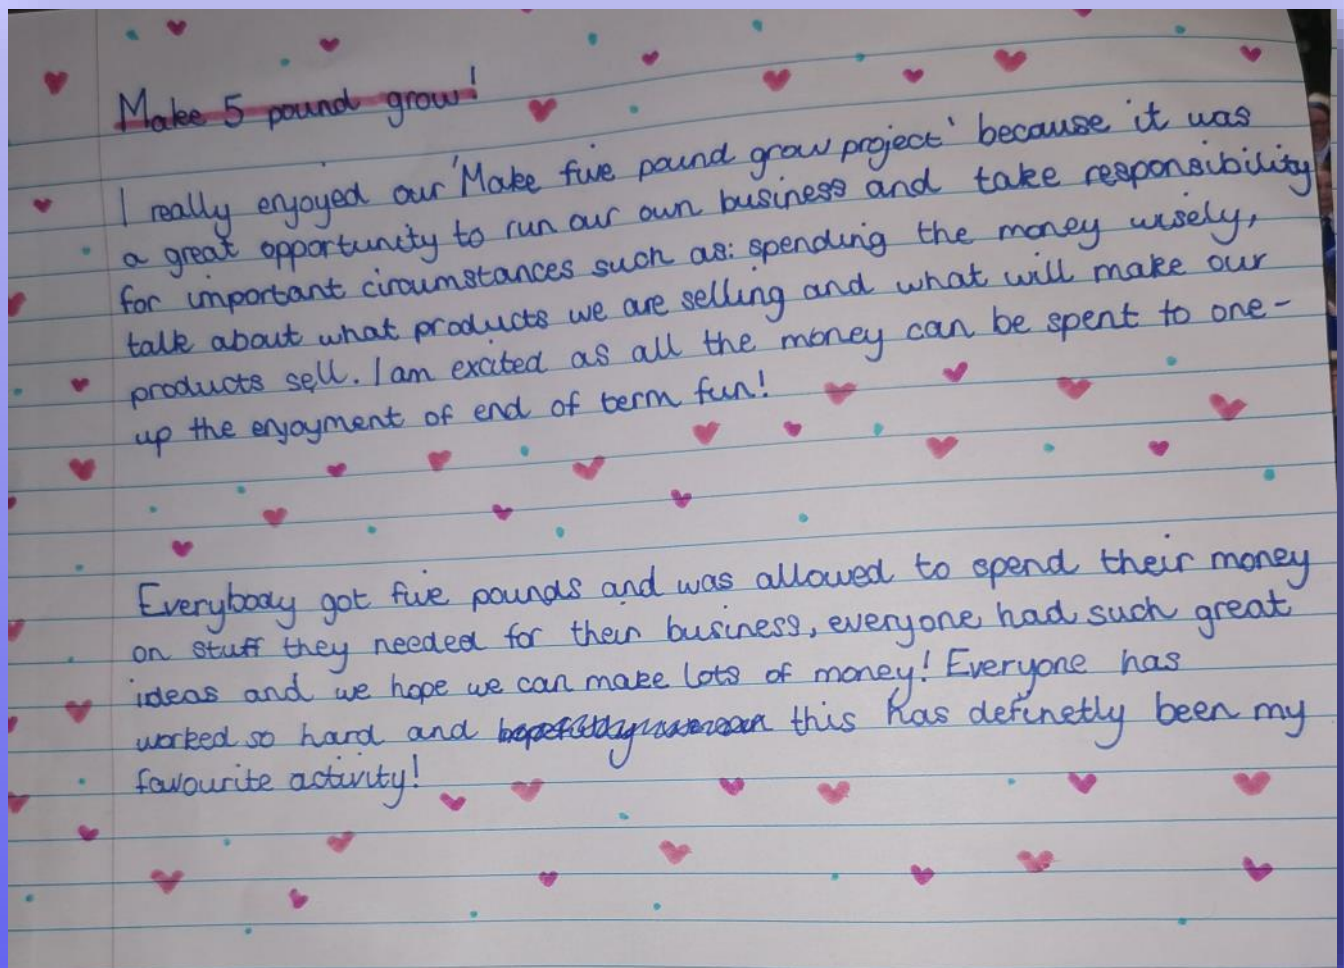 Make 5 pound grow!
I really enjoyed our 'Make five pound grow project' because it was
a great opportunity to run our own business and take responsibility
for important circumstances such as: spending the money wisely,
talk about what products we are selling and what will make our
products sell. I am excited as all the money can be spent to one-
up the enjoyment of end of term fun!
Everybody got five pounds and was allowed to spend their money
on stuff they needed for their business, everyone had such great
ideas and we hope we can make lots of money! Everyone has
worked so hard and this has definetly been my
favourite activity!